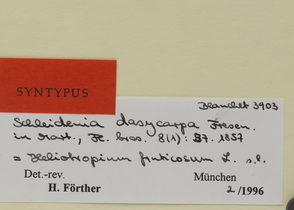 SYNTYPUS
Blanchet 3903
Schleidenia dasycarpa Fresen.
in Mart., Fl. bras. 8(1): 37. 1857
= Heliotropium fruticosum L. s.l.
Det.-rev. München
H. Förther 2/1996